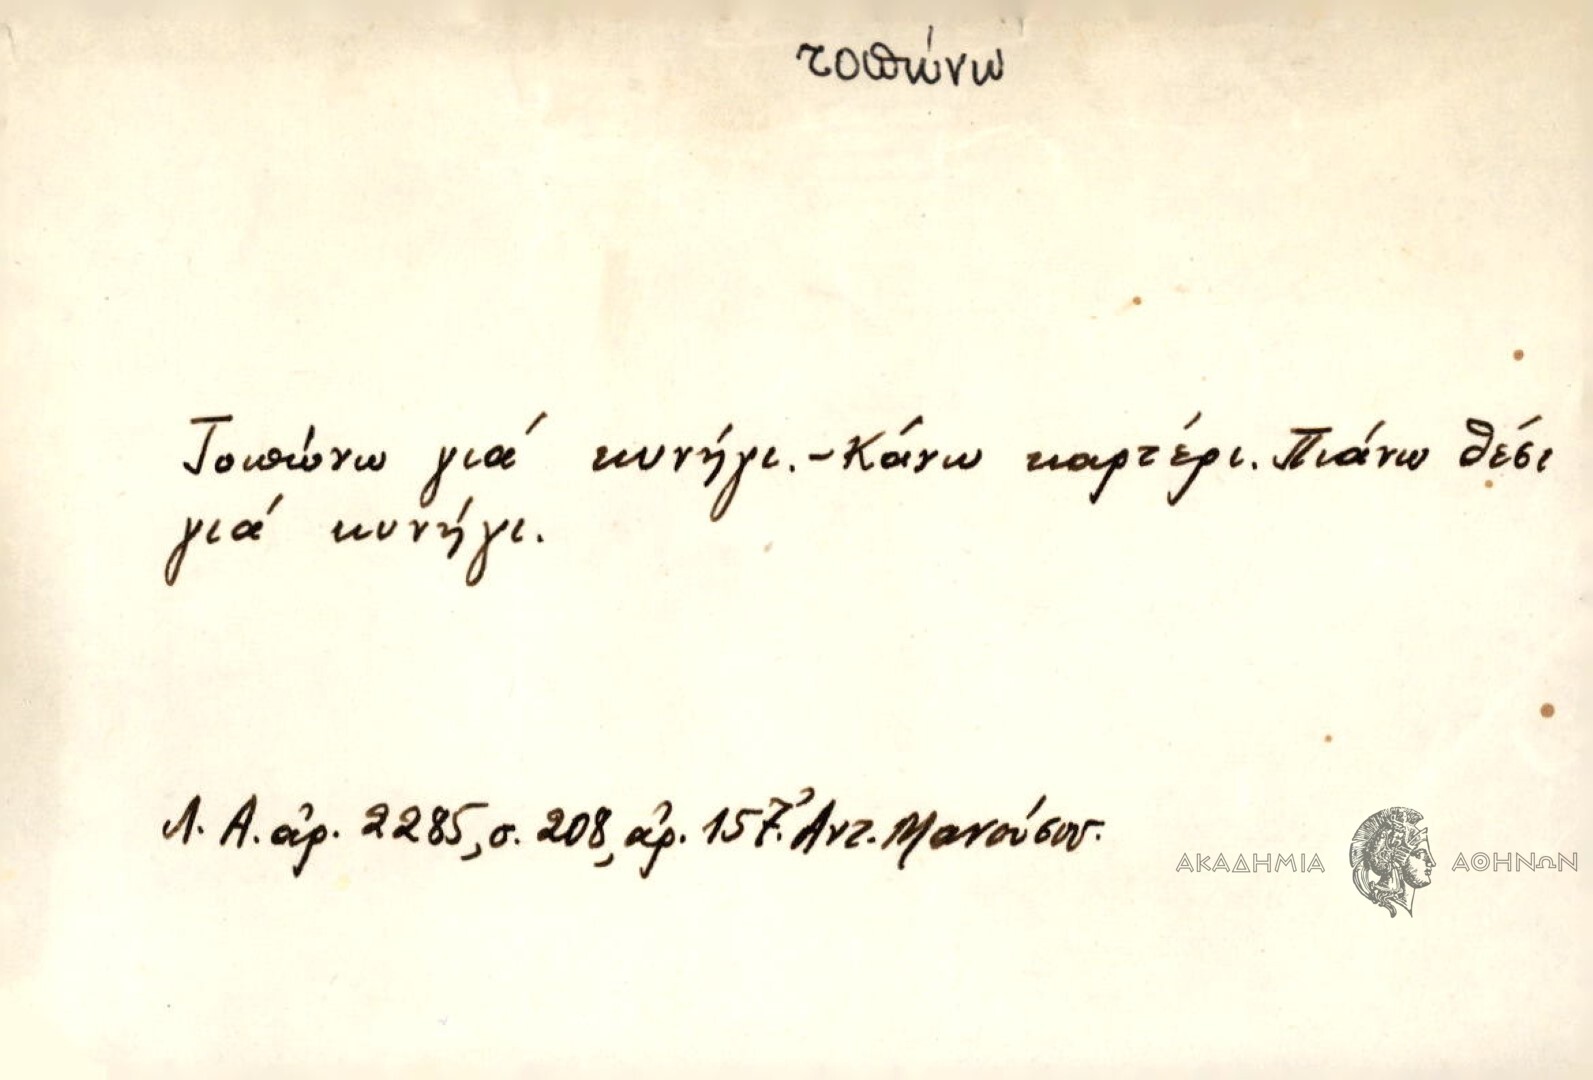 τοπώνω
Τοπώνω γιά κυνήγι. - Κάνω καρτέρι. Πιάνω θέσι
γιά κυνήγι.
Λ. Α. ἀρ. 2285, σ. 208, ἀρ. 157. Ἀντ. Μανούσου.
ΑΚΑΔΗΜΙΑ ΑΘΗΝΩΝ